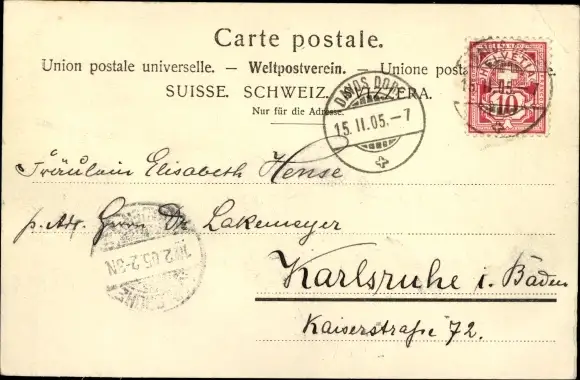 Carte postale.
Union postale universelle. — Weltpostverein. — Unione posta
SUISSE. SCHWEIZ. SVIZZERA.
Nur für die Adresse.
HELVETIA
10
DAVOS DORF
15.II.05.–7
15.II
Fräulein Elisabeth Hense
p. Adr. Herrn Dr Lakemeyer
2.05.2-3N
Karlsruhe i. Baden
Kaiserstraße 72.